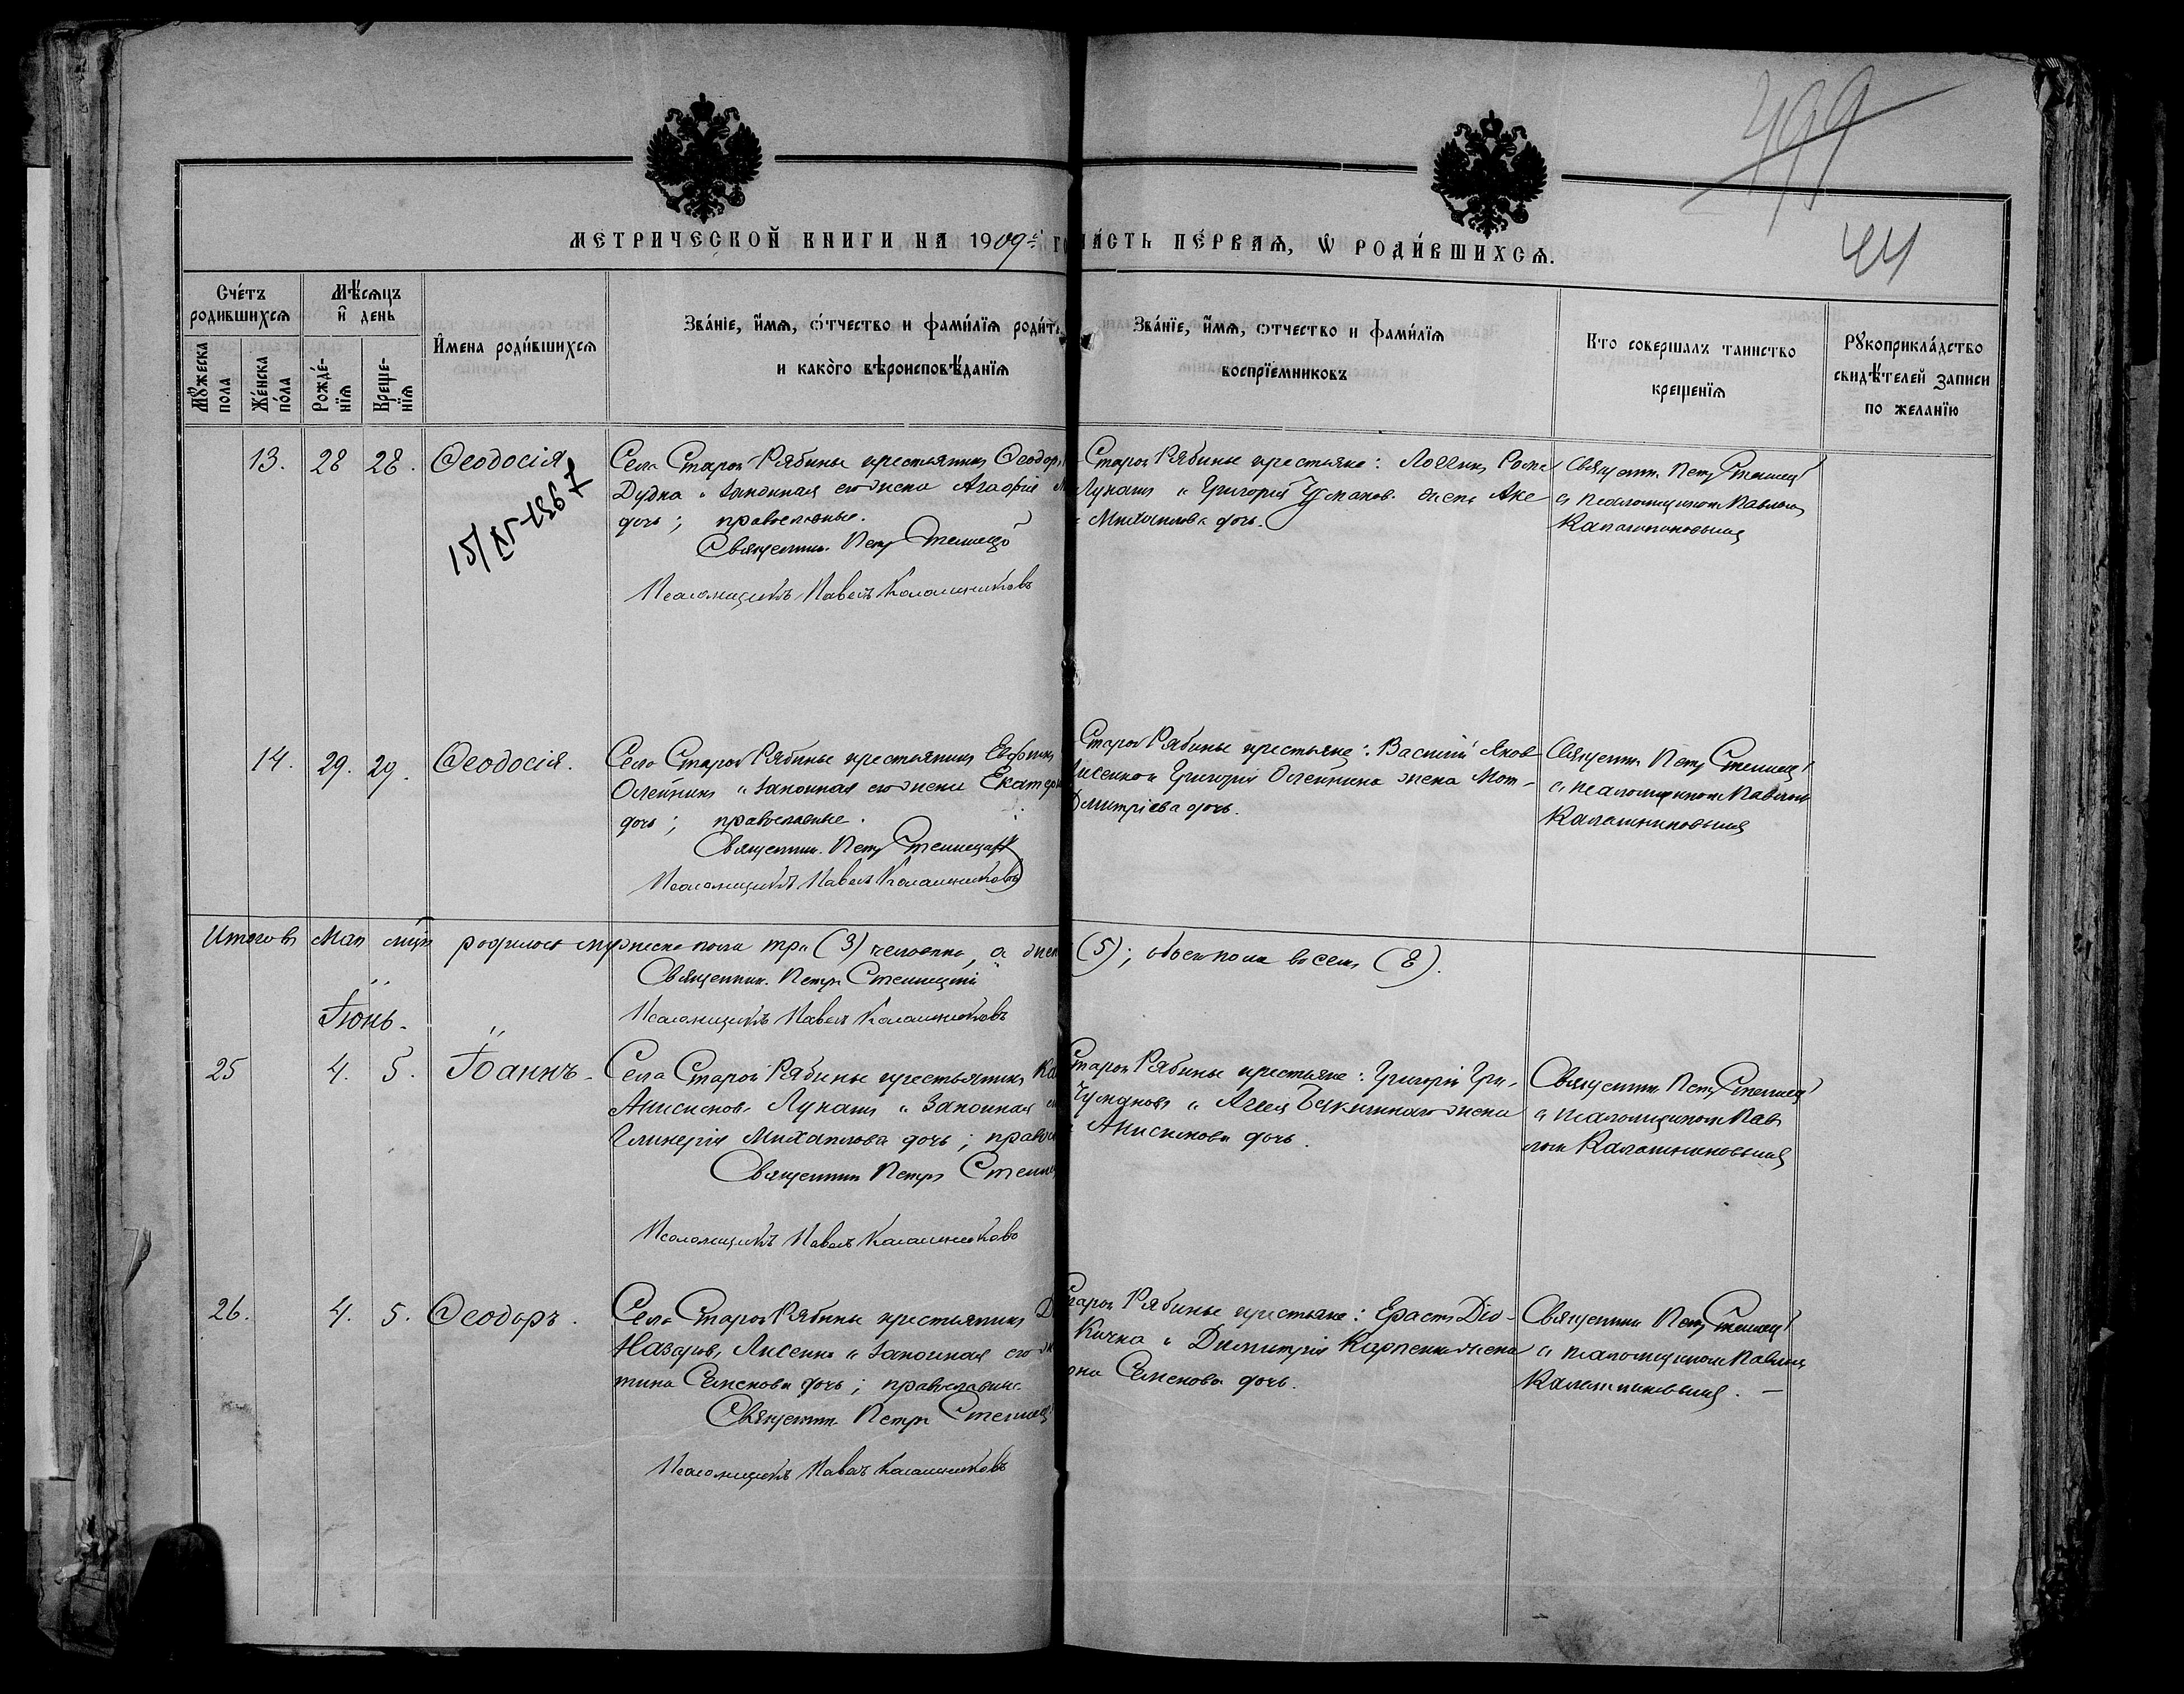 499
44
МЕТРИЧЕСКОЙ КНИГИ НА 1909 й ГО
ЧА́СТЬ ПЕ́РВАѦ, Ѽ РОДИ́ВШИХСѦ.
Сче́тъ родившихсѧ
Мꙋжеска пола
Же́нска по́ла
Мѣ́сѧцъ и҆ день
Рожде́нїѧ
Креще́нїѧ
И҆мена роди́вшихсѧ
Зва́нїе, и҆́мѧ, ѻ҆́тчество и фами́лїѧ роди́те
и како́го вѣроисповѣ́данїѧ
Зва́нїе, и҆́мѧ, ѻтчество и фами́лїѧ
воспрїемниковъ
Кто совершалъ таинство
крещенїѧ
Рꙋкоприкла́дство
свидѣ́телей записи
по желанїю
13. 28 28. Ѳеодосія
15/XI-1967
Села Старой Рябины крестьянинъ Ѳеодор
Дудка и законная его жена Агафія М
дочь; православные.
Священник. Петр Стеллецкій
Псаломщикъ Павелъ Калашниковъ
Старой Рябины крестьяне: Логгинъ Рома
Лукашъ и Григорія Чуманов. жена Аке
Михаилова дочь.
Священн. Петръ Стеллецкій
съ псаломщикомъ Павломъ
Калашниковымъ
14. 29. 29. Ѳеодосія.
Села Старой Рябины крестьянинъ Евфимій
Олейникъ и законная его жена Екатери
дочь; православные.
Священник. Петръ Стеллецкій
Псаломщикъ Павелъ Калашниковъ
Старой Рябины крестьяне: Василій Яков
Лисенко и Григорія Олейника жена Мот-
Димитріева дочь.
Священн. Петръ Стеллецкій
съ псаломщикомъ Павломъ
Калашниковымъ
Итого въ Маѣ мѣсяцѣ родилось мужеска пола три (3) человека, а женс
(5); обоего пола восемь (8).
Священник. Петръ Стеллецкій
Псаломщикъ Павелъ Калашниковъ
Іюнь.
25 4. 5. Іоаннъ.
Села Старой Рябины крестьянинъ Ка
Анисимов. Лукашъ и законная е
Гликерія Михаилова дочь; правос
Священник Петръ Стелле
Псаломщикъ Павелъ Калашниковъ
Старой Рябины крестьяне: Григорій Гри-
Чумановъ и жена
Анисимова дочь.
Священн. Петръ Стеллецкій
съ псаломщикомъ Пав
ломъ Калашниковымъ
26. 4. 5. Ѳеодоръ.
Села Старой Рябины крестьянинъ Д
Назаров. Лисенко и законная его ж
тина Семенова дочь; православные
Священник. Петръ Стеллец
Псаломщикъ Павелъ Калашниковъ
Старой Рябины крестьяне: Ерастъ Діо-
Кичка и Димитрія Карпенка жена
она Семенова дочь.
Священник Петръ Стеллецкій
съ псаломщикомъ Павломъ
Калашниковымъ. –